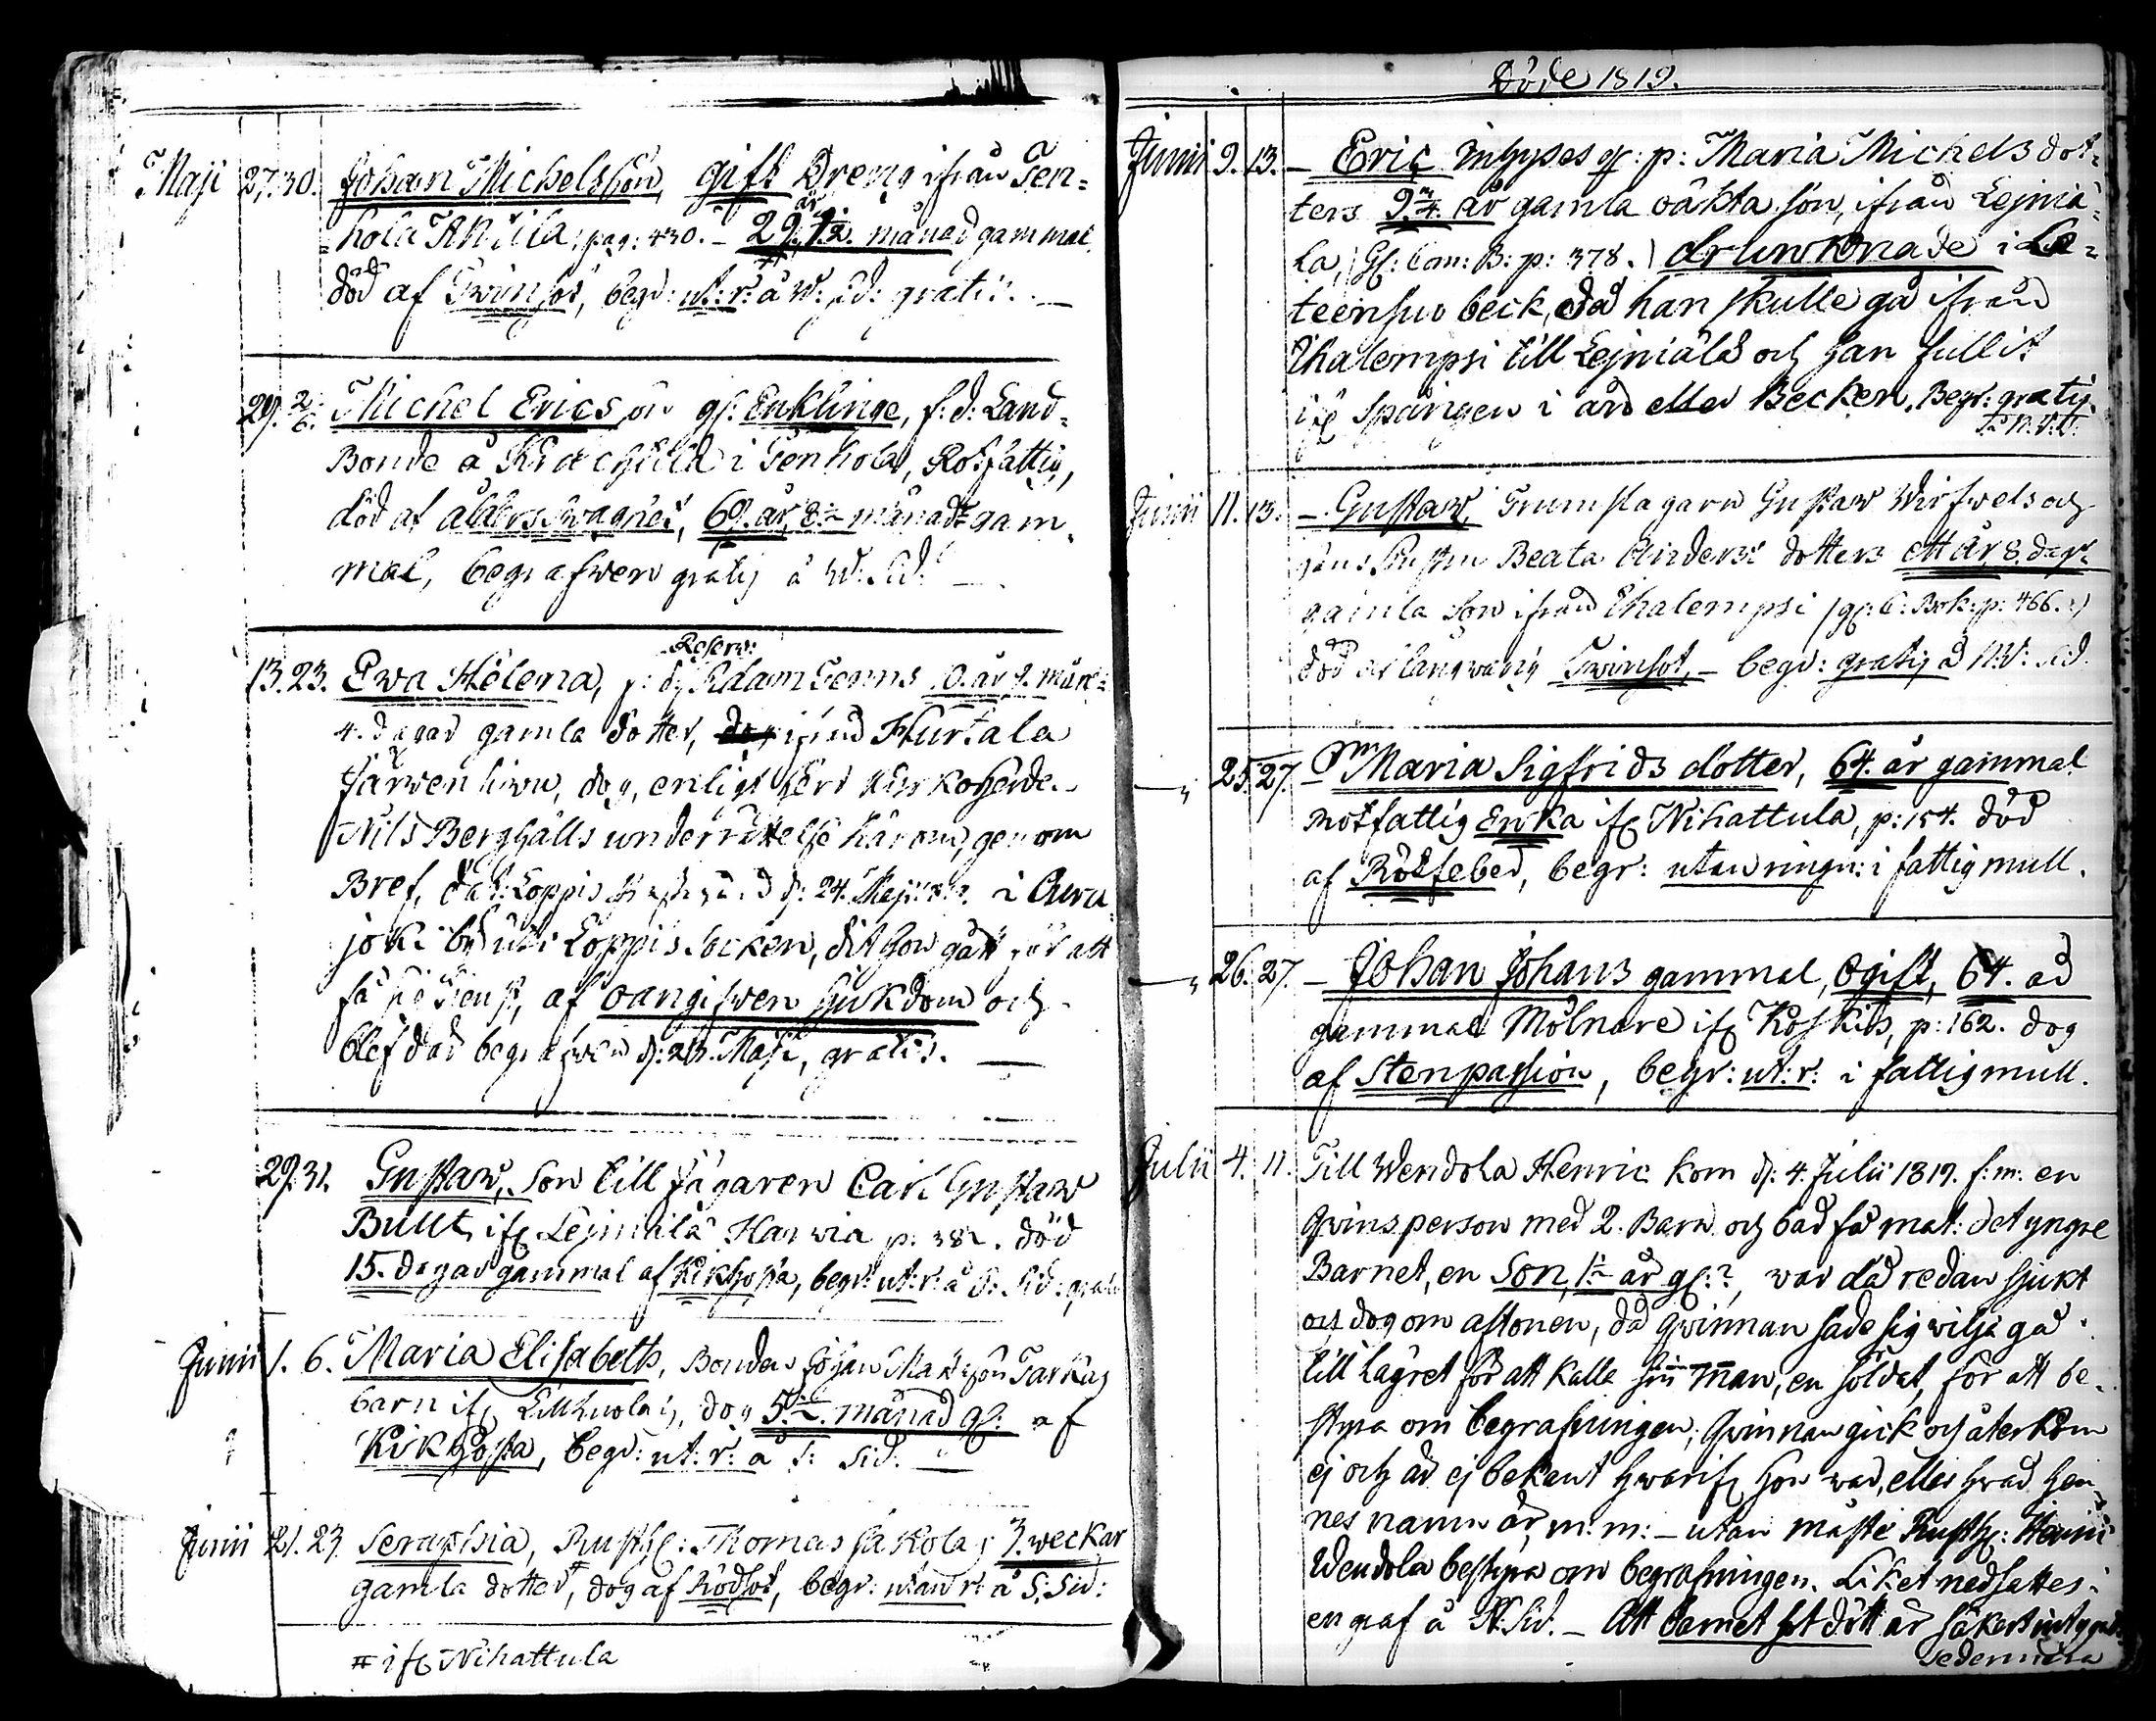 Maji 27. 30. Johan Michelsson, gift Dreng ifrån Ten-
hola Anila, pag: 430. – 29. år 1/2. månad gammal
död af Twinsot, begr: ut: r: å W: sid: gratis. –
29. 2/6. Michel Ericsson gl: Enklinge, f: d: Land-
Bonde å i Tenhola, Rotfattig,
död af ålderswaghet, 69. år, 8. månad gam-
mal, begrafwen gratis å W: Sid. –
13. 23. Ewa Helena, Reserw: Adam Tenns 10. år 9. mån:
4. dagar gamla dotter, ifrån Hurtala
dog, enligt Herr Kyrkoherde
Nils Berghälls underrättelse härom, genom
Bref, dat: Loppis d: 24. Maji i
joki by uti Loppis Socken, dit hon gått för att
få sig tienst, af oangifwen Sjukdom och
blef där begrafwen d: 23. Maji, gratis. –
29. 31. Gustaw, Son till Jägaren Carl Gustaw
Bullt, ifr Lejniälä Harvia p: 382. död
15. dagar gammal af Kikhosta, begr: ut: r: å S: Sid: gratis
Junii 1. 6. Maria Elisabeth, Bonden Johan Tarkas
barn ifr dog 5. månad gl: af
Kikhosta, begr: ut: r: å S: Sid. –
Junii 21. 23. Seraphia, Rusth: Thomas Jakolas 3. weckar
gamla dotter #, dog af Rödsot, begr: utan r: å S: Sid:
# ifr Nihattula
Döde 1819.
Junii 9. 13. – Eric Inhyses q: p: Maria Michelsdot-
ters 9. 3/4. år gamla oäkta son, ifrån Lejniä-
la, (Gl: Com: B: p: 378.) drunknade i La-
teensuo beck, då han skulle gå ifrån
Thalempsi till Lejniälä och han fallit
ifr Spången i ån eller Becken. Begr: gratis
å N. Sid.
Junii 11. 13. – Gustaw, Trumslagarn Gustaw Wirfwels och
hans Hustru Beata Anders dotters ett år 8. dagr
gamla Son ifrån Thalempsi (gl: C: Bok: p: 466.)
död af långwarig Twinsot, – begr: gratis å N: Sid.
– " 25. 27. – Maria Sigfrids dotter, 64. år gammal
rotfattig Enka ifr Nihattula, p: 154. död
af Rötfeber, begr: utan ringn: i fattig mull.
– " 26. 27. – Johan Johans gammal, ogift, 64. år
gammal Mölnare ifr Koskis, p: 162. dog
af Stenpassion, begr: ut: r: i fattig mull.
Julii 4. 11. Till Wendola Henric kom d: 4. Julii 1819. f: m: en
Qwinsperson med 2. Barn och bad få mat: det yngre
Barnet, en Son, 1 1/2 år gl: ?, war då redan sjukt
och dog om aftonen, då qwinnan sade sig wilja gå
till lägret för att kalla sin man, en soldat, för att be-
styra om begrafningen; Qwinnan gick och återkom
ej och är ej bekant hwarifr hon war, eller hwad hen-
nes namn är, m: m: – utan måste Rusth: Henric
Wendola bestyra om begrafningen. Liket nedsattes i
en graf å N: Sid. – Att barnet sot dött är säkert intygat
sedermera